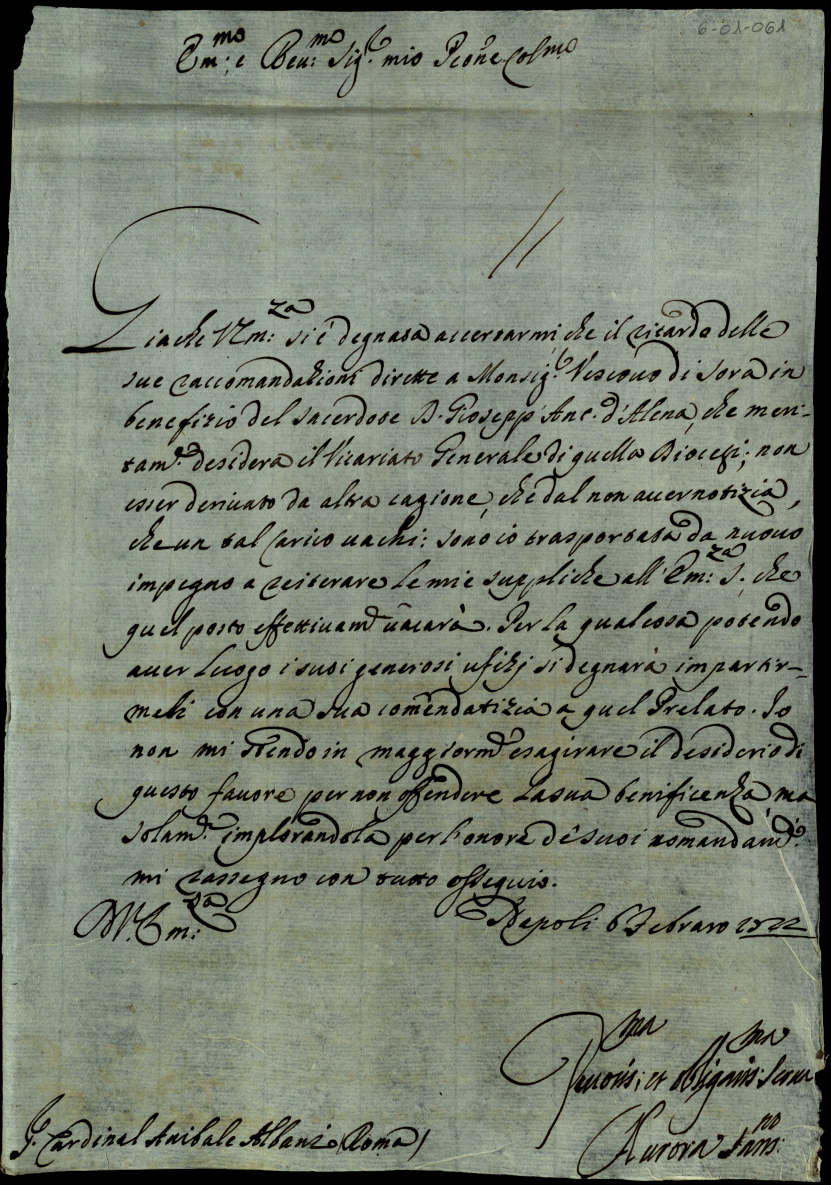 6-01-061
Em:mo e Reu:mo Sig.r mio P̃rone Col.mo
Giache V Em:za si è degnata accertarmi, che il ritardo delle
sue raccomandazioni dirette a Monsig.r Vescouo di Sora in
benefizio del sacerdote D. Gioseppe Ant. d'Alena, che meri-
tam.e desidera il Vicariato Generale di quella Diocesi; non
esser deriuato da altra cagione, che dal non auer notizia,
che un tal carico uachi: sono io trasportata da nuouo
impegno a reiterare le mie suppliche all'Em:za S. che
quel posto effettiuam.e uacarà. Per la qual cosa potendo
auer luogo i suoi generosi ufizj si degnarà impartir-
meli con una sua comẽndatizia a quel Prelato. Io
non mi stendo in maggiorm.e esagirare il desiderio di
questo fauore per non offendere la sua benificenza, ma
solam.e implorandola per l'onore de suoi comandam.ti
mi rassegno con tutto ossequio.
D V. Em:za Napoli 6 Febraro 1722
Deuotis:ma et obligatis:ma Serua
Aurora San:no
S.r Cardinal Anibale Albani (Roma)